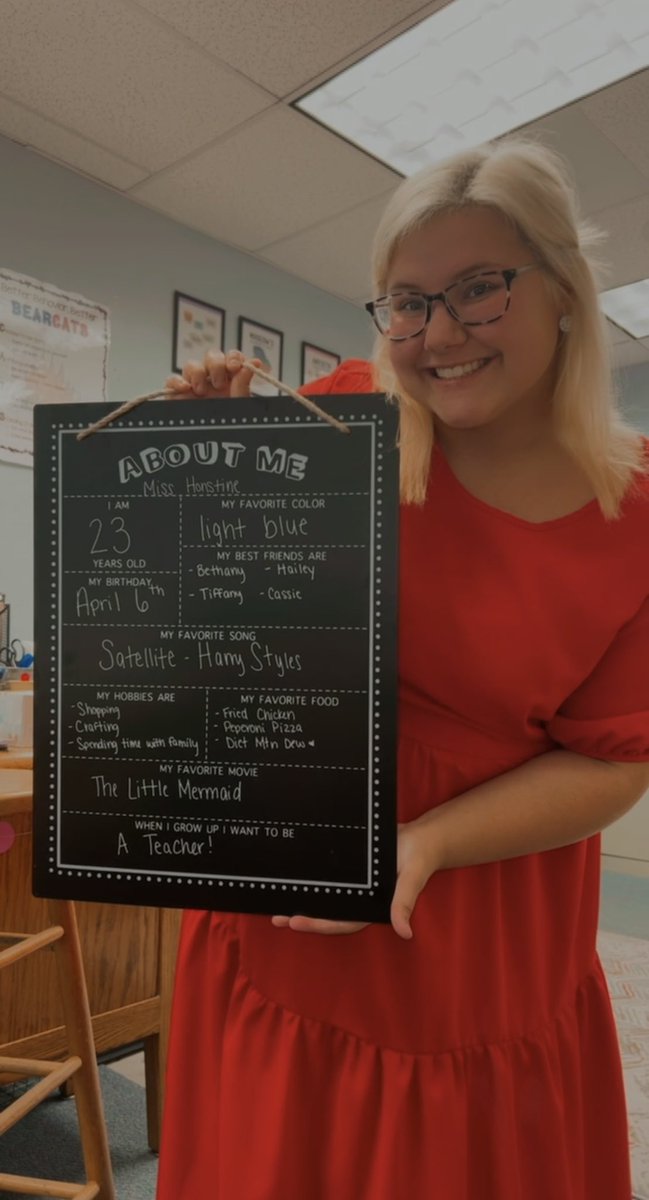 Better Behavior, Better
BEARCATS
ABOUT ME
Miss Honstine
I AM
23
YEARS OLD
MY FAVORITE COLOR
light blue
MY BIRTHDAY
April 6th
MY BEST FRIENDS ARE
- Bethany - Hailey
- Tiffany - Cassie
MY FAVORITE SONG
Satellite - Harry Styles
MY HOBBIES ARE
- Shopping
- Crafting
- Spending time with family
MY FAVORITE FOOD
- Fried Chicken
- Peperoni Pizza
- Diet Mtn Dew ♥
MY FAVORITE MOVIE
The Little Mermaid
WHEN I GROW UP I WANT TO BE
A Teacher!